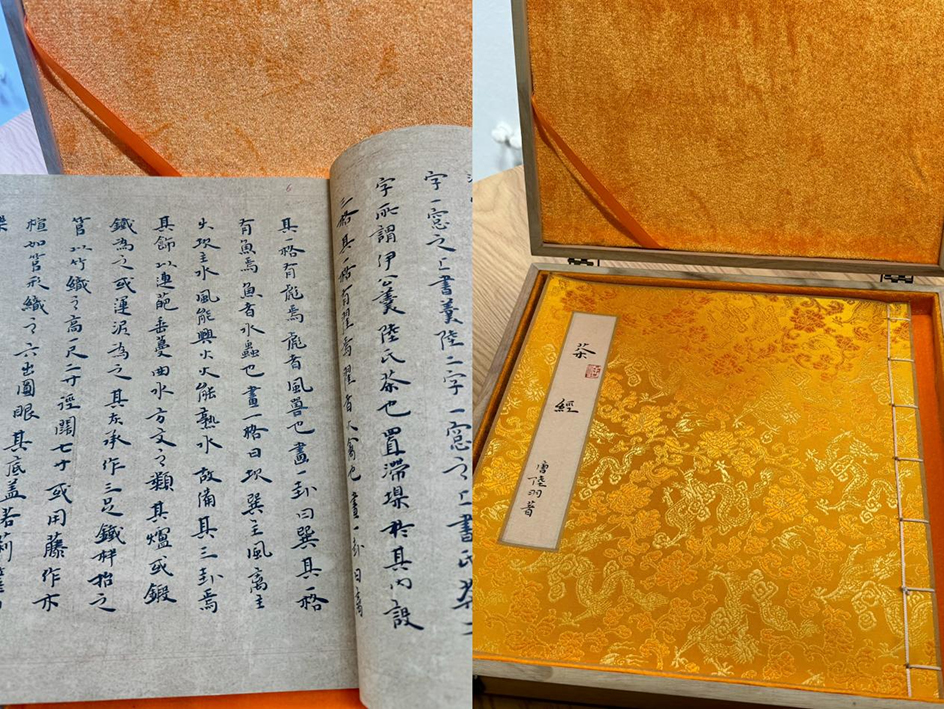 字一窓之上書羹陸二字一窓之上書氏茶二
字所謂伊公羹陸氏茶也置滯㙞於其内設
三格其一格有翟焉翟者火禽也畫一卦曰离
6
其一格有彪焉彪者風獸也畫一卦曰巽其一格
有魚焉魚者水蟲也畫一格曰坎巽主風离主
火坎主水風能興火火能熟水故備其三卦焉
其飾以連葩垂蔓曲水方文之類其爐或鍛
鐵為之或運泥為之其灰承作三足鐵柈抬之
筥以竹織之高一尺二寸徑闊七寸或用藤作木
楦如筥形織之六出圓眼其底盖若莉
茶經
唐陸羽著